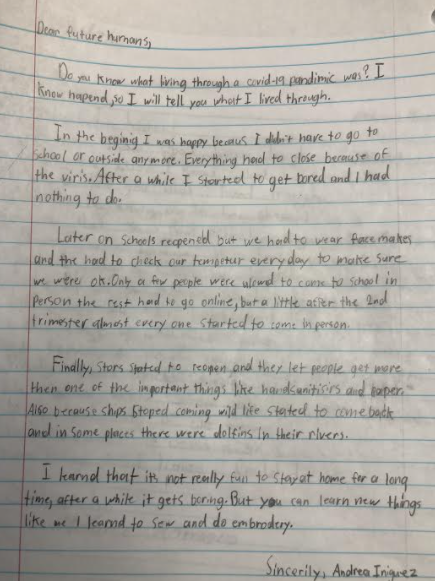 Dear future humans,
Do you know what living through a covid-19 pandimic was? I
know hapend, so I will tell you what I lived through.
In the beginig I was happy becaus I didn't have to go to
school or outside anymore. Everything had to close because of
the viris. After a while I started to get bored and I had
nothing to do.
Later on schools reopened but we had to wear facemakes
and the had to check our tempetur everyday to make sure
we were ok. Only a few people were alowd to come to school in
person the rest had to go online, but a little after the 2nd
trimester almost every one started to come in person.
Finally, stors stated to reopen and they let people get more
then one of the important things like handsanitisirs and paper.
Also because ships stoped coming wild life stated to come back
and in some places there were dolfins in their rivers.
I learnd that its not really fun to stay at home for a long
time, after a while it gets boring. But you can learn new things
like me I learnd to sew and do embrodery.
Sincerily, Andrea Iniguez